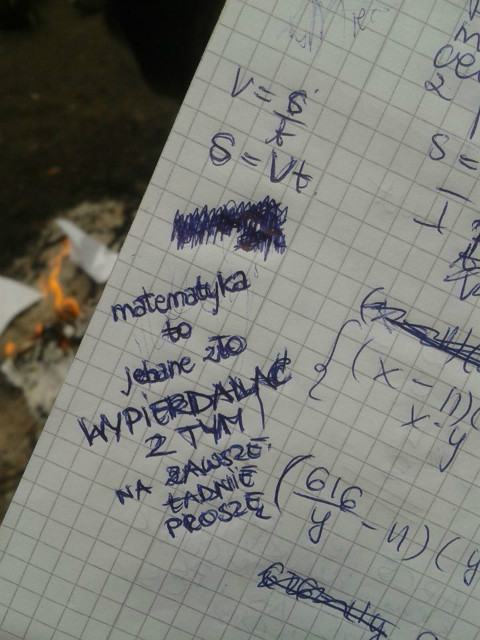 V = s/t
S = Vt
matematyka
to
jebane zło
WYPIERDALAĆ
Z TYM
NA ZAWSZE
ŁADNIE
PROSZĘ
2
S =
(x - 11)(
x · y
(616/y - 11)(y